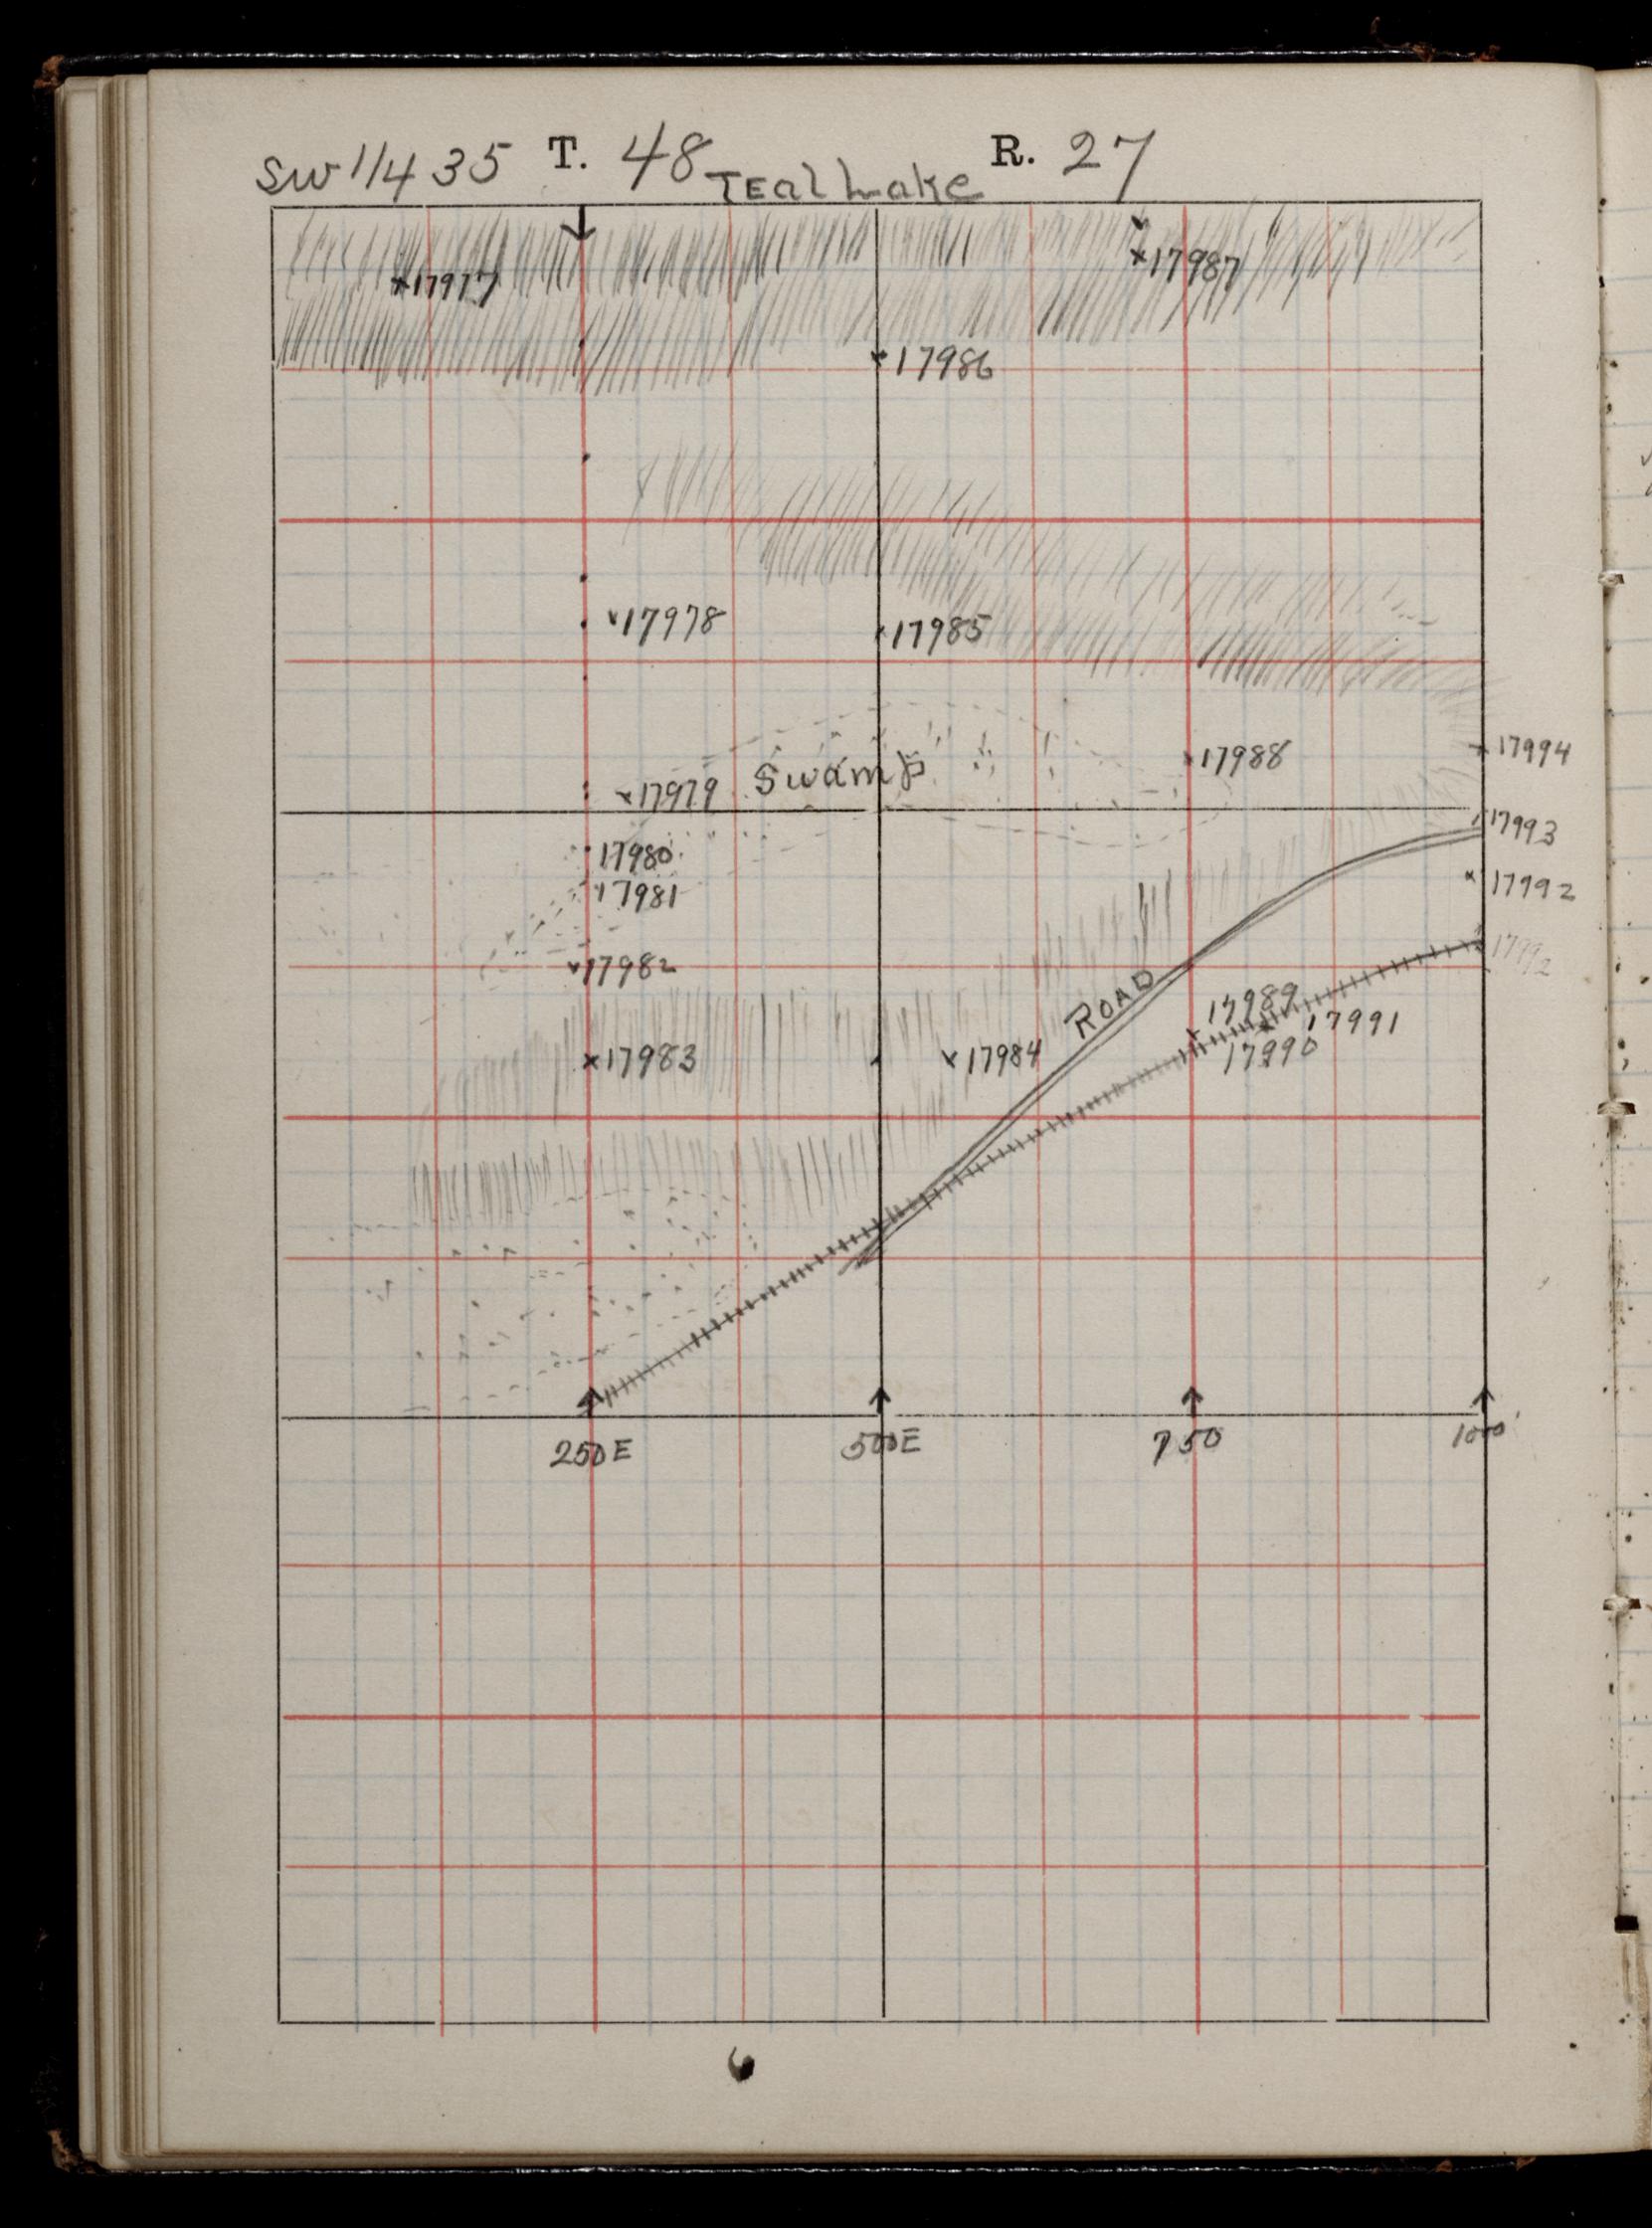 SW 1/4 35 T. 48 R. 27
Teal Lake
17977
17987
17986
17978
17985
17988
17994
17979
Swamp
17993
17980
17981
17992
17982
17992
ROAD
17989
17991
17983
17984
17990
250E
500E
750
1000'